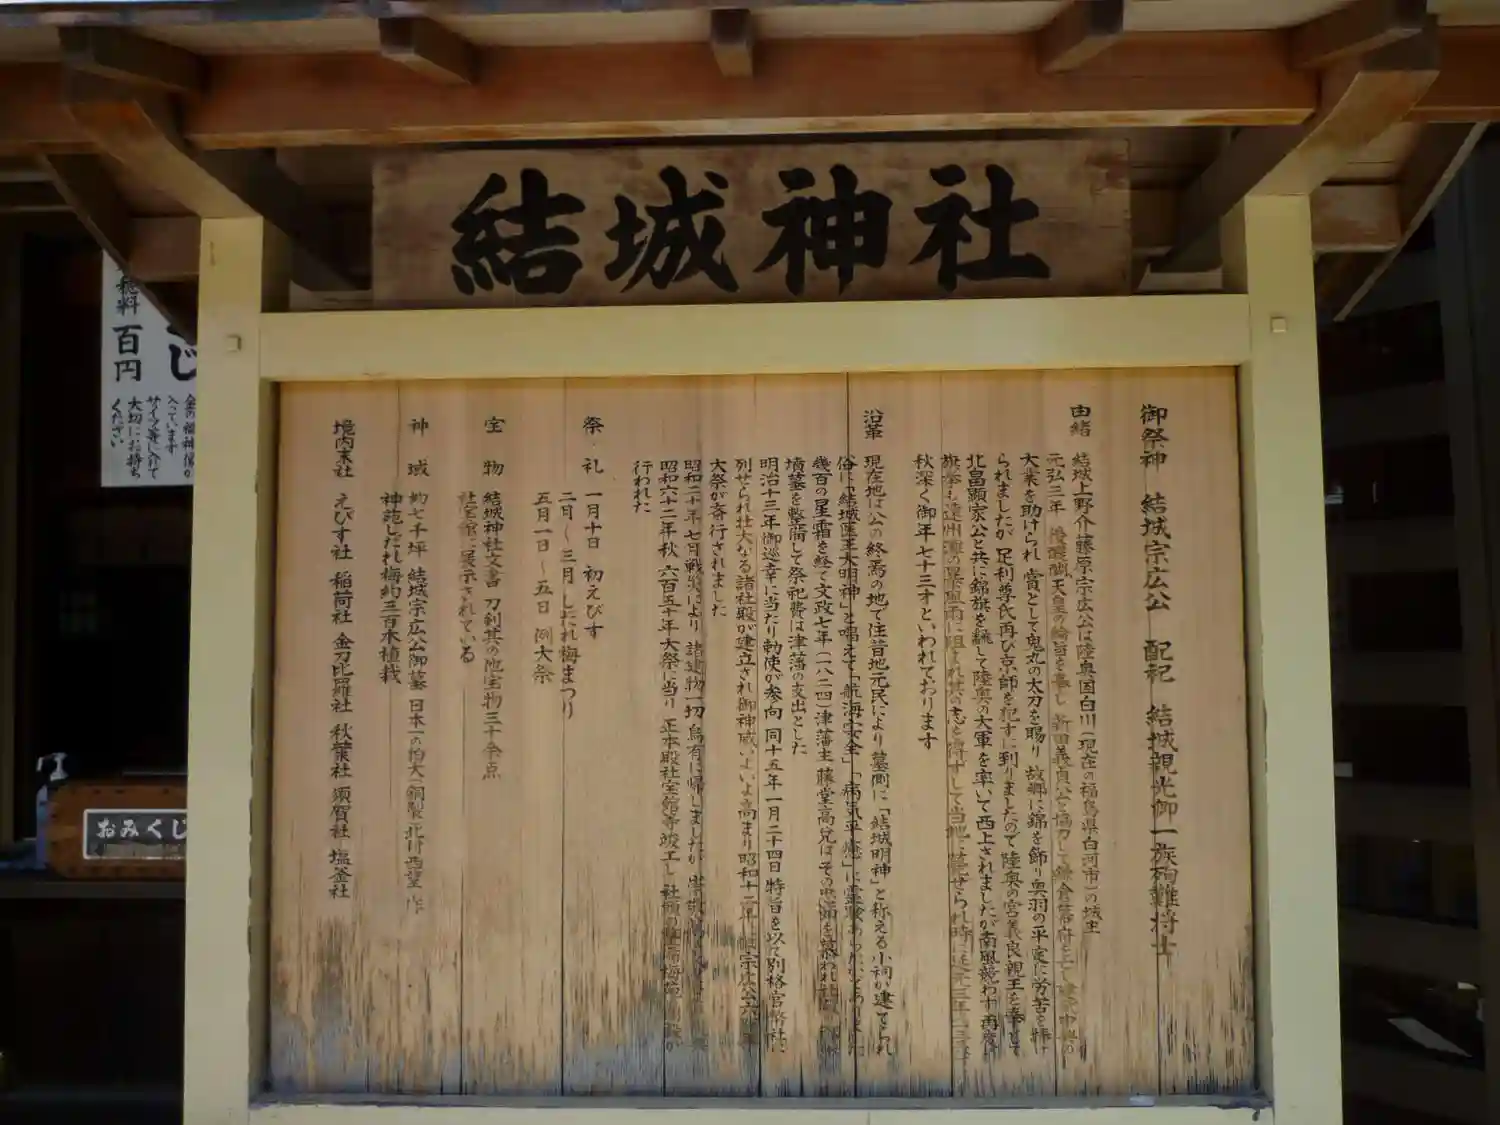 結城神社
御祭神 結城宗広公 配祀 結城親光御一族殉難将士
由緒 結城上野介藤原宗広公は陸奥国白川(現在の福島県白河市)の城主
元弘三年 後醍醐天皇の綸旨を奉じ 新田義貞公と協力して鎌倉幕府を
大業を助けられ 賞として鬼丸の太刀を賜り 故郷に錦を飾り奥羽の平定に労苦を
られましたが 足利尊氏再び京師を犯すに到りましたので 陸奥の宮義良親王を奉じて
北畠顕家公と共に錦旗を飜して陸奥の大軍を率いて西上されましたが南風競わず 再度
旗挙も遠州灘の暴風雨に阻まれ其の志を得ずして当地で薨ぜられ時に延元三年
秋深く御年七十三才といわれております
沿革 現在地は公の終焉の地で往昔地元民により墓側に「結城明神」と称える小祠が建てられ
俗に「結城医王大明神」と唱えて「航海安全」「病気平癒」に霊験あらたかで
幾百の星霜を経て文政七年(一八二四)津藩主 藤堂高兌はその忠節を慕われ社殿
墳墓を整備して祭祀費は津藩の支出とした
明治十三年御巡幸に当たり勅使が参向 同十五年一月二十四日特旨を以て別格官幣社に
列せられ壮大なる諸社殿が建立され御神威いよいよ高まり昭和十二年 宗広公六百年
大祭が斎行されました
昭和二十年七月戦災により 諸建物一切 烏有に帰しましたが
昭和六十二年秋 六百五十年大祭に当り 正本殿社宝館等竣工し 社頭の整備梅苑
行われた
祭 礼 一月十日 初えびす
二月～三月 しだれ梅まつり
五月一日～五日 例大祭
宝 物 結城神社文書 刀剣其の他宝物三十余点
社宝館に展示されている
神 域 約七千坪 結城宗広公御墓 日本一の狛犬(銅製)北村西望 作
神苑しだれ梅約三百本植栽
境内末社 えびす社 稲荷社 金刀比羅社 秋葉社 須賀社 塩釜社
百円
入っています
サイフ等に入れて
大切にお持ち
ください
おみくじ